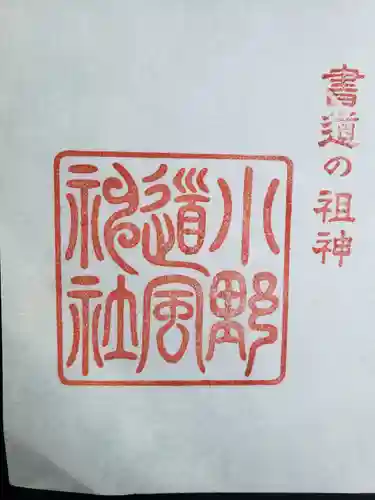 書道の祖神
小野
道風
祠社